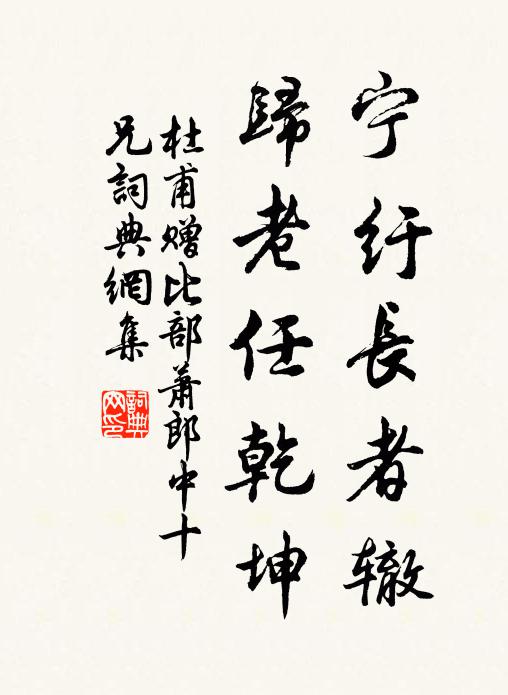 宁纡長者辙
歸老任乾坤
杜甫赠比部萧郎中十
兄詞典網集
詞典网印